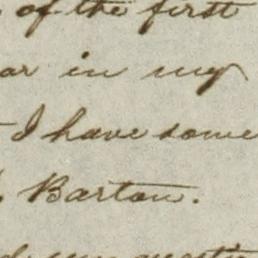 of the first
ar in my
I have some
Barton.